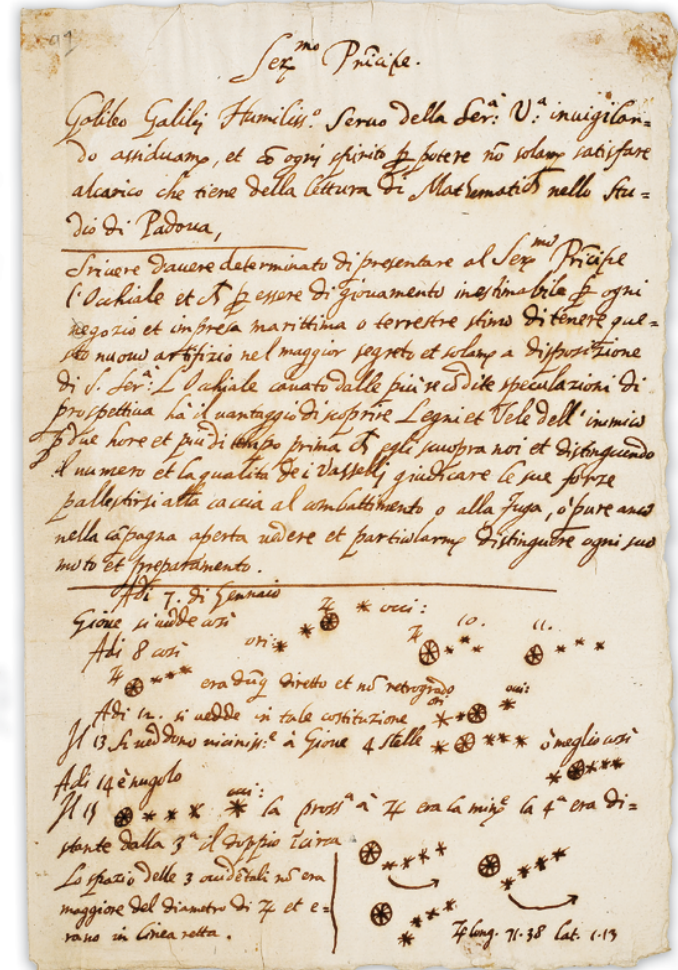 Ser.mo Prĩcipe.
Galileo Galilej Humiliss.o Servo della Ser.a V.a invigilan=
do assiduam.e, et cõ ogni spirito p potere nõ solam.e satisfare
al carico che tiene della lettura di Mathematich nello Stu=
dio di Padova,
Scrivere d'avere determinato di presentare al Ser.mo Prĩcipe
l'Occhiale et ch p essere di giovamento inestimabile p ogni
negozio et impresa marittima o terrestre stimo di tenere que=
sto nuovo artifizio nel maggior segreto et solam.e a disposizione
di S. Ser.a: L'Occhiale cavato dalle più recõdite speculazioni di
prospettiva hà il vantaggio di scoprire Legni et Vele dell'inimico
p due hore et più di tempo prima ch egli scuopra noi et distinguendo
il numero et la qualità dei Vasselli giudicare le sue forze
pallestirsi alla caccia al combattimento o alla fuga, ò pure anco
nella cãpagna aperta vedere et particolarm.e distinguere ogni suo
moto et preparamento.
Adi 7. di Gennaio
Giove si vedde così ♃ * occi:
ori: ♃ 10. 11.
Adi 8 così
♃ era dũq diretto et nõ retrogrado
ori occi:
Adi 12. si vedde in tale costituzione
Il 13 si veddono viciniss.e à Giove 4 stelle ò meglio così
Adi 14 è nugolo
Il 15 occi: la pross.a à ♃ era la min.e la 4.a era di=
stante dalla 3.a il doppio ĩcirca
Lo spazio delle 3 occidẽtali nõ era
maggiore del diametro di ♃ et e=
rano in linea retta.
♃ long. 71.38 Lat. 1.13